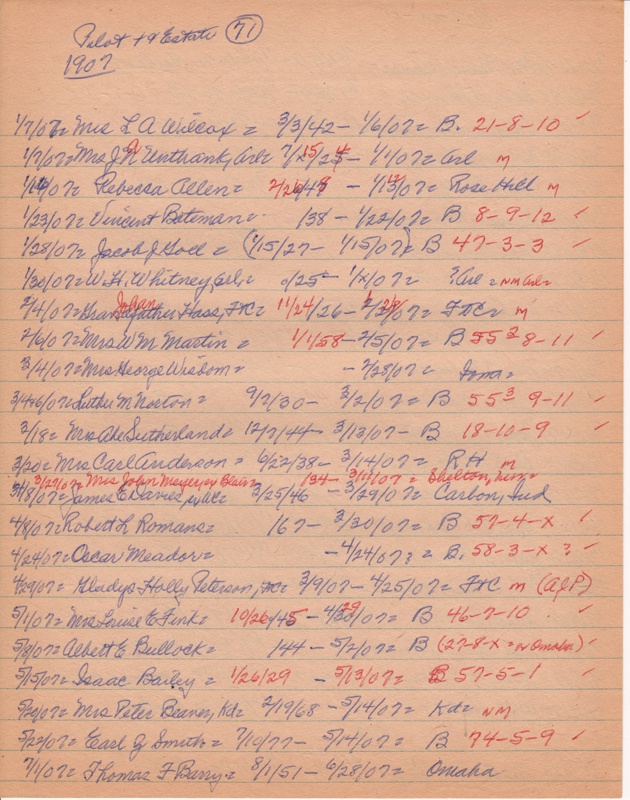 Pilot + & Estate (71)
1907
1/7/07= Mrs L A Wilcox = 3/3/42 - 1/6/07 = B. 21-8-10 ✓
1/7/07= Mrs J R Unthank, Arl= 7/15/25 4 - 1/1/07= Arl m
1/14/07= Rebecca Allen= 2/26/49 - 1/13/07= Rose Hill m
1/23/07= Vincent Bateman= 138 - 1/22/07= B 8-9-12 ✓
1/28/07= Jacob J Goll = (1/15/27 - 1/15/07) = B 47-3-3 ✓
1/30/07= W. H. Whitney Arl,= 0/25 - 1/x/07= ? Arl = NM Arl=
2/4/07= Grandfather Johan Hass, FTC= 11/24/26 - 2/07= FTC= m
2/6/07= Mrs W M Martin = 1/1/58 - 2/5/07= B 55 3 8-11 ✓
3/4/07= Mrs George Wisdom= - 2/28/07=
3/4+6/07= Luther M Norton= 9/7/30 - 3/2/07= B 55 3 9-11 ✓
3/18= Mrs Abe Sutherland= 12/7/44 - 3/13/07= B 18-10-9 ✓
3/20= Mrs Carl Anderson = 6/22/38 - 3/14/07= R H m
3/27/07= Mrs John Blair= 134 - 3/11/07= Shelton,
3/18/07= James E Davies, = 3/25/46 - 3/29/07= Carbon, Ind
4/8/07= Robert L Romans= 167 - 3/30/07= B 57-4-x ✓
4/24/07= Oscar Meador= - 4/24/07? = B. 58-3-x ? ✓
4/29/07= Gladys Holly Peterson, FTC= 3/9/07 - 4/25/07= FTC m (A&P)
5/1/07= Mrs Louise E Fink= 10/26/45 - 4/29/07= B 46-7-10 ✓
5/8/07= Albert E Bullock= 144 - 5/2/07= B (27-8-x = or Omaha) ✓
5/15/07= Isaac Bailey= 1/26/29 - 5/13/07= B 57-5-1 ✓
5/20/07= Mrs Peter Beaver, Kd= 2/19/68 - 5/14/07= Kd= NM
5/22/07= Earl J Smith= 7/10/77 - 5/14/07= B 74-5-9 ✓
7/1/07= Thomas F Barry= 8/1/51 - 6/28/07= Omaha